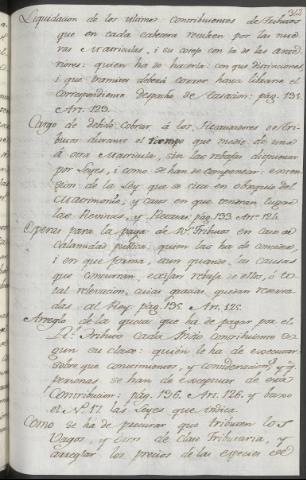 Liquidacion de los ultimos contribuientes de Tributos
que en cada cabecera reciben por las nue-
vas Matriculas, i su cotejo con la de las ante-
riores: quien ha de hacerla: con que distinciones,
i que tramites deberá correr hasta librarse el
correspondiente despacho de tasacion: pág. 131.
Art. 123.
Cargo de debido cobrar á los Recaudadores de Tri-
butos durante el tiempo que medie de una
á otra Matricula, con las rebajas dispuestas
por Leyes, i como se han de comprobar: exten-
sion de la Ley que se cita en obsequio del
Matrimonio, y casos en que tendrán lugar
las Reservas, y Recargos pág. 133. Art. 124.
Esperas para la paga de Rs. Tributos en caso de
calamidad publica, quien las ha de conceder,
i en que forma, aun quando las causas
que concurran, exijan rebaja de ellos, ó to-
tal relevacion, cuias gracias, quedan reserva-
das al Rey. pág. 135. Art. 125.
Arreglo de la quota que ha de pagar por el
Rl. Tributo cada Indio contribuiente se-
gun su clase: quién le ha de executar,
sobre que conocimientos, y consideraciones, y q.
personas se han de exceptuar de esta
Contribucion: pág. 136. Art. 126. y baxo
el N.º 17 las Leyes que indica.
Como se ha de procurar, que tributen los
Vagos, y otros de clase Tributaria, y
arreglar los precios de las especies de